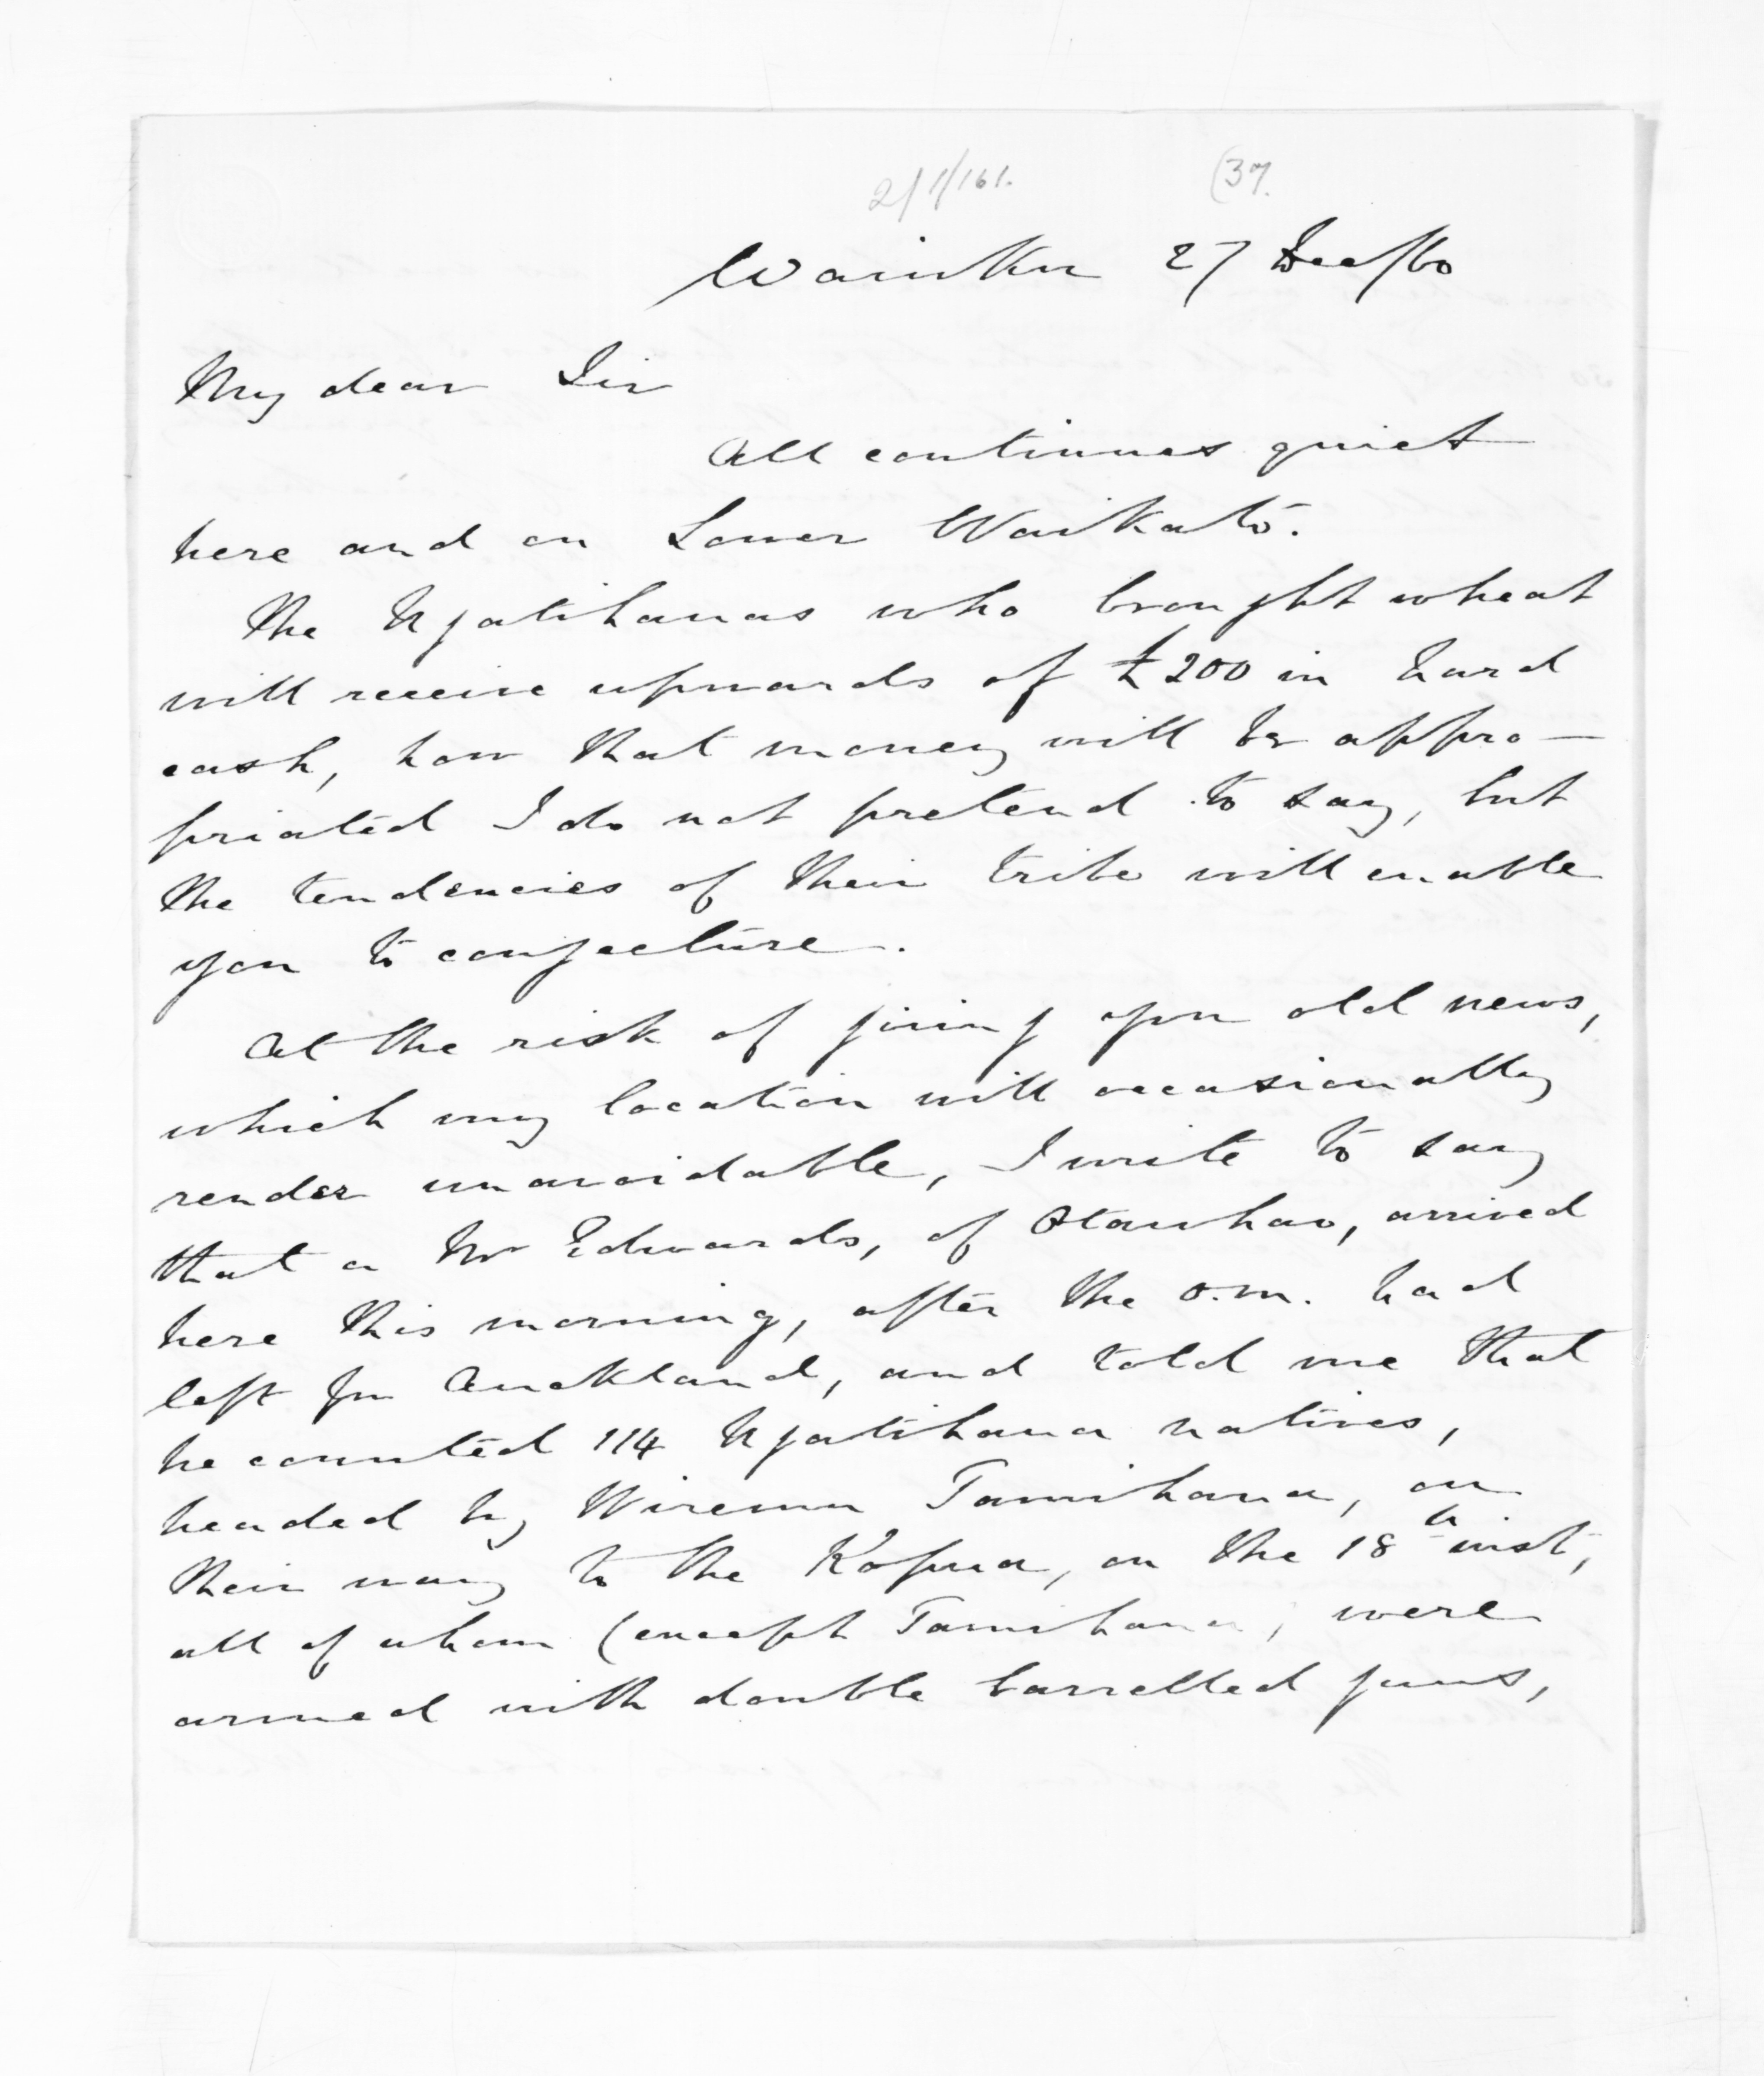 2/1/161.
(37.
Waiuku 27 Dec/60
My dear Sir
All continues quiet
here and on Lower Waikato.
The Ngatihauas who brought wheat
will receive upwards of £200 in hard
cash, how that money will be appro-
priated I do not pretend to say, but
the tendencies of their tribe will enable
you to conjecture.
At the risk of giving you old news,
which my location will occasionally
render unavoidable, I write to say
that a Mr Edwards, of Otawhao, arrived
here this morning, after the o.m. had
left for Auckland, and told me that
he counted 114 Ngatihaua natives,
headed by Wiremu Tamihana, on
their way to the Kopua, on the 18th inst,
all of whom (except Tamihana, were
armed with double barrelled guns,